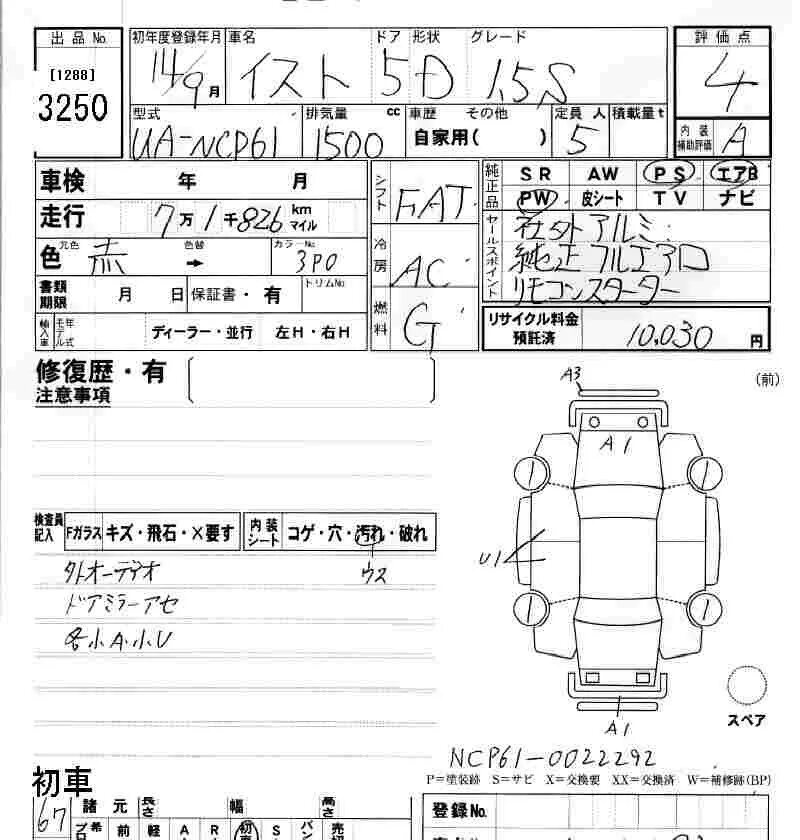 出品 No.
[1288]
3250
初年度登録年月 車名 ドア 形状 グレード
14/9月 イスト 5 D 1.5S
評価点
4
内装補助評価 A
型式 排気量 cc 車歴 その他 定員 人 積載量 t
UA-NCP61 1500 自家用( ) 5
車検 年 月
走行 7万1千826 km マイル
色 元色 赤 色替 → カラーNo. 3P0
書類期限 月 日 保証書・有 トリムNo.
輸入車 モデル年式 ディーラー・並行 左H・右H
シフト FAT
冷房 AC
燃料 G
純正品 SR AW PS エアB
PW 皮シート TV ナビ
セールスポイント
社外アルミ
純正フルエアロ
リモコンスターター
リサイクル料金預託済 10,030 円
修復歴・有
注意事項
(前)
A3
A1
U1
A1
検査員記入 Fガラス キズ・飛石・×要す 内装シート コゲ・穴・汚れ・破れ
外オーディオ ウス
ドアミラーアセ
各小A.小U
スペア
NCP61-0022292
P=塗装跡 S=サビ X=交換要 XX=交換済 W=補修跡(BP)
初車
67
諸元 長さ 幅 高さ
登録No.